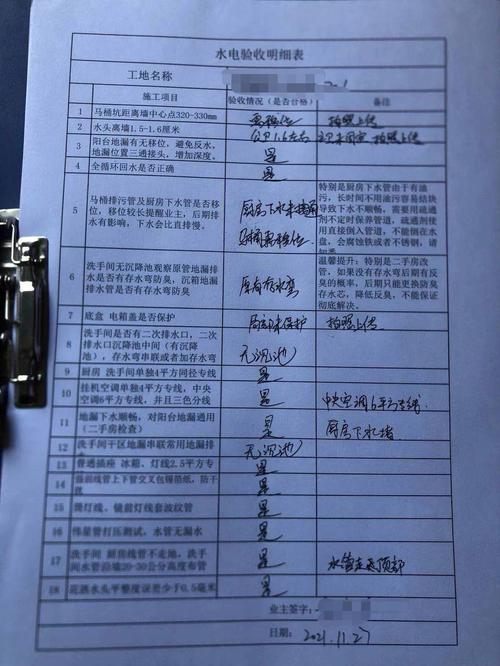 水电验收明细表
工地名称
施工项目 验收情况（是否合格） 备注
1 马桶坑距离墙中心点320-330mm 需移位 拍照上传
2 水头离墙1.5-1.6厘米 公卫1.6左右 拍照上传
3 阳台地漏有无移位，避免反水、
地漏位置三通接头，增加深度。 是
4 全循环回水是否正确 是
5 马桶排污管及厨房下水管是否移
位，移位较长提醒业主，后期排
水有影响，下水会比直排慢。
厨房下水未接通
马桶需移位
特别是厨房下水管由于有油
污，长时间不用油污容易结块
导致下水不顺畅，需要用疏通
剂不定时保养管道，疏通剂使
用直接倒入管道，不能倒在水
盘，会腐蚀铁或者不锈钢，请知
悉。
6 洗手间无沉降池观察原管地漏排
水是否有存水弯防臭，沉箱地漏
排水管是否有存水弯防臭
原有存水弯
温馨提升：特别是二手房改
管，如果没有存水弯后期有反
臭的概率，后期只能更换防臭
存水芯，降低反臭，不能保证
彻底解决。
7 底盒 电箱盖是否保护 保护 拍照上传
8 洗手间是否有二次排水口，二次
排水口沉降池中间（有沉降
池），存水弯串联或者加存水弯
无沉池
9 厨房 洗手间单独4平方同径专线 是
10 挂机空调单独4平方专线，中央
空调6平方专线，并且三色分线 是 中央空调6平方专线
11 地漏下水顺畅，对阳台地漏通用
（二手房检查） 是 厨房下水堵
12 洗手间干区地漏串联常用地漏排
水 无沉池
13 普通插座 冰箱、灯线2.5平方专 是
14 强弱线管上下管交叉包锡箔纸，防干
是
15 筒灯线、镜前灯线套波纹管 是
16 伟星管打压测试，水管无漏水 是
17 洗手间 厨房线管不走地，洗手
间水管沿墙20-30公分高度布管 是 水管走顶部
18 花洒水头平整度误差少于0.5毫米 是
业主签字：
日期： 2021.11.27